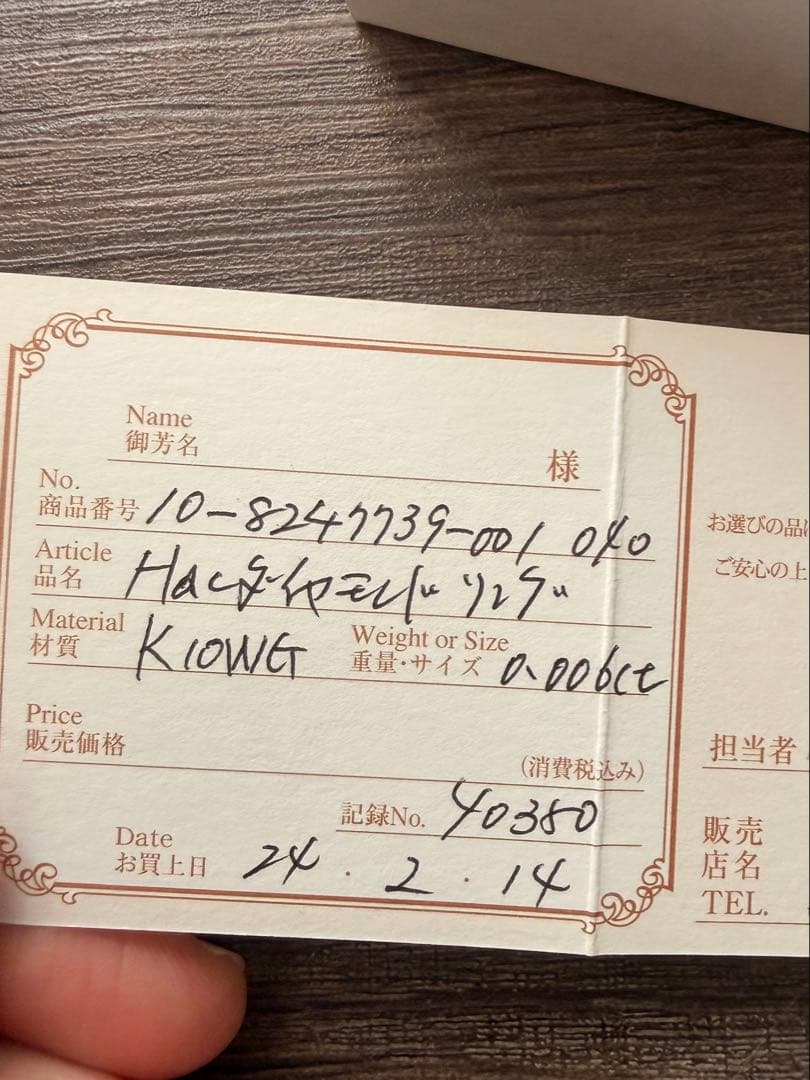 Name
御芳名 様
No.
商品番号 10-8247739-001 040
Article
品名 H&Cダイヤモンドリング
Material
材質 K10WG
Weight or Size
重量・サイズ 0.006ct
Price
販売価格
(消費税込み)
記録No. 40380
Date
お買上日 24.2.14
お選びの品
ご安心の上
担当者
販売
店名
TEL.